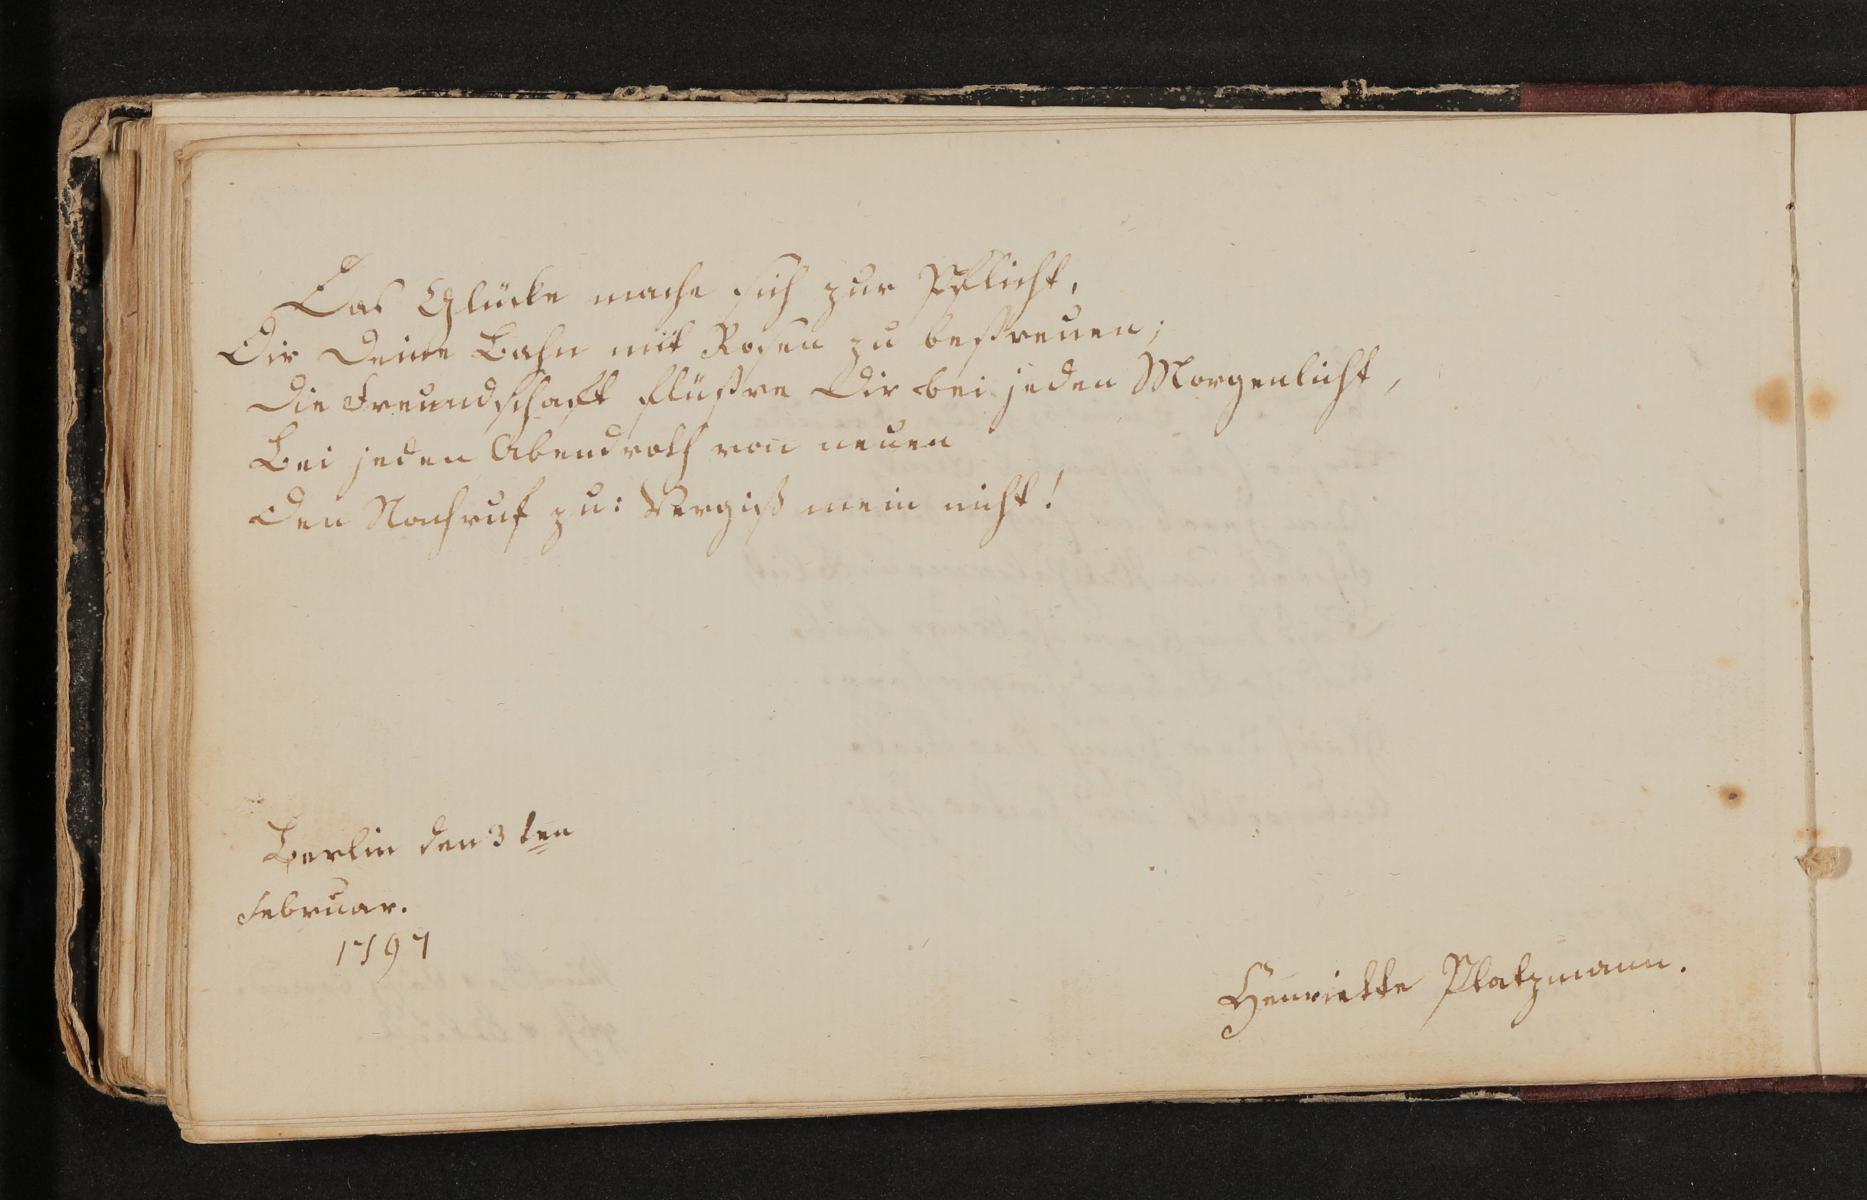 Das Glücke mache sich zur Pflicht,
Dir Deine Bahn mit Rosen zu bestreuen;
Die Freundschaft flüstre Dir bei jeden Morgenlicht,
Bei jeden Abendroth von neuen
Den Nachruf zu: Vergiß mein nicht!
Berlin den 3ten
Februar.
1797
Henriette Platzmann.